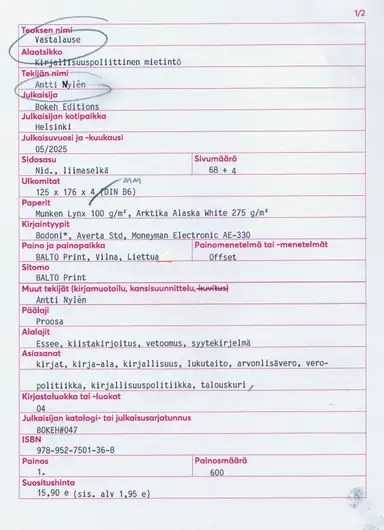 1/2
Teoksen nimi
Vastalause
Alaotsikko
Kirjallisuuspoliittinen mietintö
Tekijän nimi
Antti Nylén
Julkaisija
Bokeh Editions
Julkaisijan kotipaikka
Helsinki
Julkaisuvuosi ja -kuukausi
05/2025
Sidosasu Sivumäärä
Nid., liimaselkä 68 + 4
Ulkomitat MM
125 x 176 x 4 (DIN B6)
Paperit
Munken Lynx 100 g/m², Arktika Alaska White 275 g/m²
Kirjaintyypit
Bodoni*, Averta Std, Moneyman Electronic AE-330
Paino ja painopaikka Painomenetelmä tai -menetelmät
BALTO Print, Vilna, Liettua Offset
Sitomo
BALTO Print
Muut tekijät (kirjamuotoilu, kansisuunnittelu, kuvitus)
Antti Nylén
Päälaji
Proosa
Alalajit
Essee, kiistakirjoitus, vetoomus, syytekirjelmä
Asiasanat
kirjat, kirja-ala, kirjallisuus, lukutaito, arvonlisävero, vero-
politiikka, kirjallisuuspolitiikka, talouskuri,
Kirjastoluokka tai -luokat
04
Julkaisijan katalogi- tai julkaisusarjatunnus
BOKEH#047
ISBN
978-952-7501-36-8
Painos Painosmäärä
1. 600
Suositushinta
15,90 e (sis. alv 1,95 e)